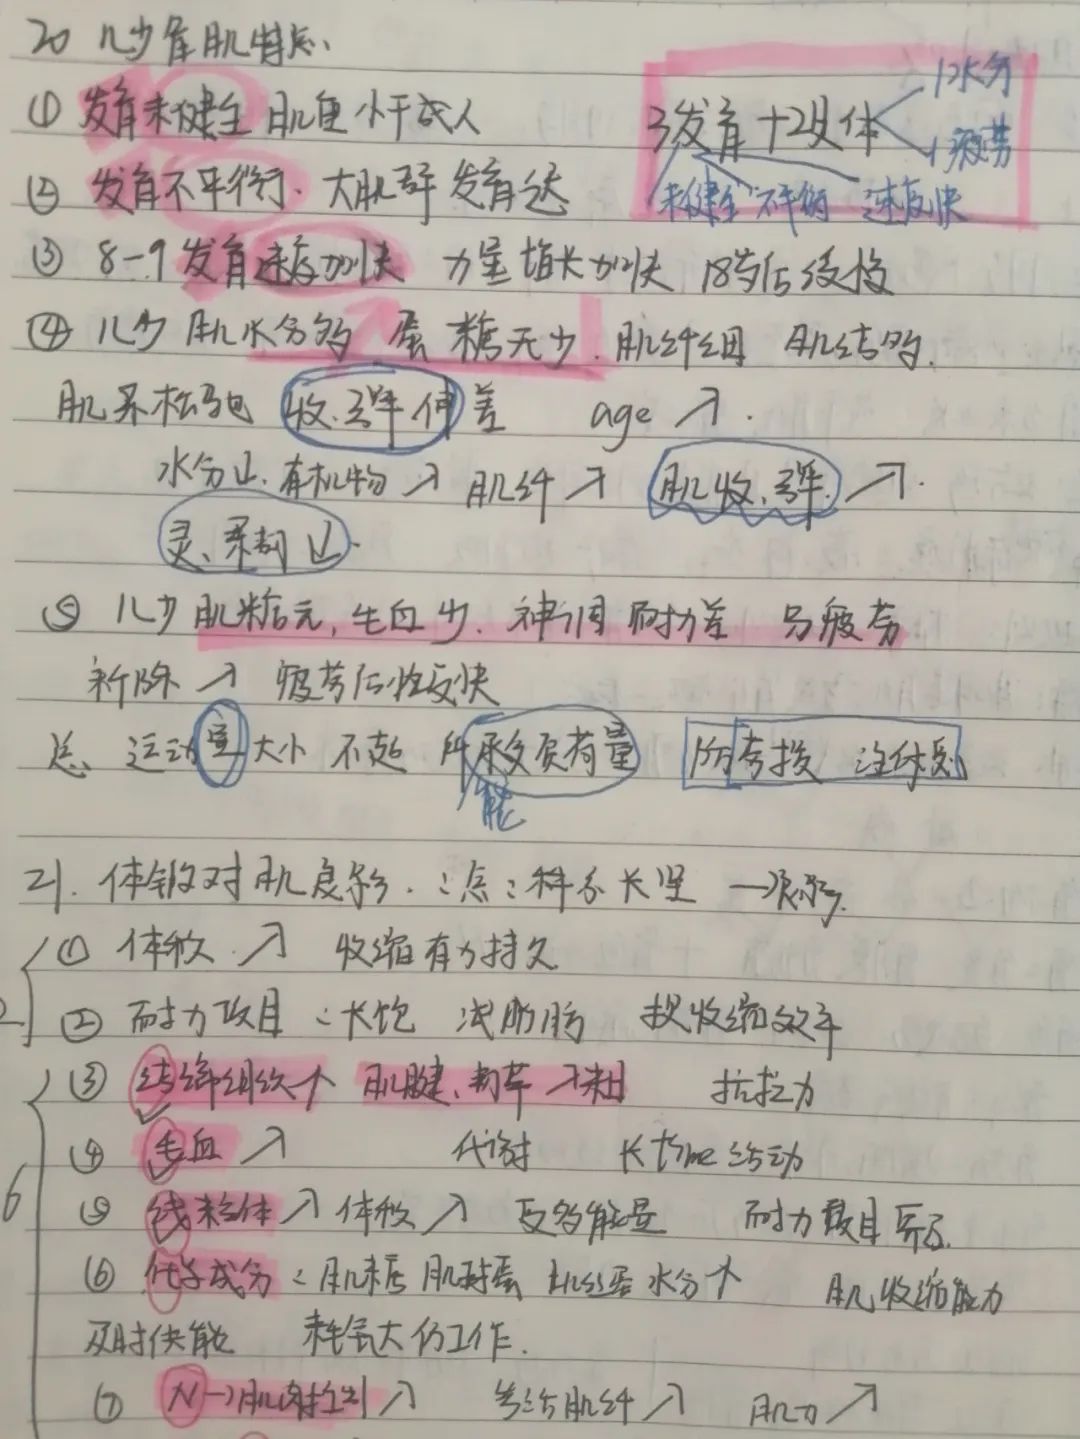 20 儿少年肌特点、
3发育+2具体 1水分 1疲劳
未健全 不平衡 速度快
① 发育未健全 肌重小于成人
② 发育不平衡、大肌群发育
③ 8-9发育速度加快 力量增长加快 18岁后缓慢
④ 儿少肌水分多 蛋 糖元少. 肌纤细 肌结
肌 松弛 收.弹 伸差 age ↗.
水分↓. 有机物↗ 肌纤↗ 肌收.弹.↗.
灵、↓.
⑤ 儿少肌糖元, 毛血少. 神调 耐力差 易疲劳
新陈↗ 疲劳后恢复快
总 运动量大小 不超 所承受负荷量
能
注休息
21. 体锻对肌良影.
① 体积↗ 收缩有力持久
② 耐力项目: 减脂肪 提收缩效率
③ 结缔组织↑ 肌腱、韧带↗粗 抗拉力
④ 毛血↗ 代谢 长time活动
⑤ 线粒体↗体积↗ 更多能量 耐力项目
⑥ 化学成分: 肌糖 肌 蛋 水分↑ 肌收缩能力
及时供能 耗氧大仍工作.
⑦ N→肌肉控制↗ 肌纤↗ 肌力↗
2
6